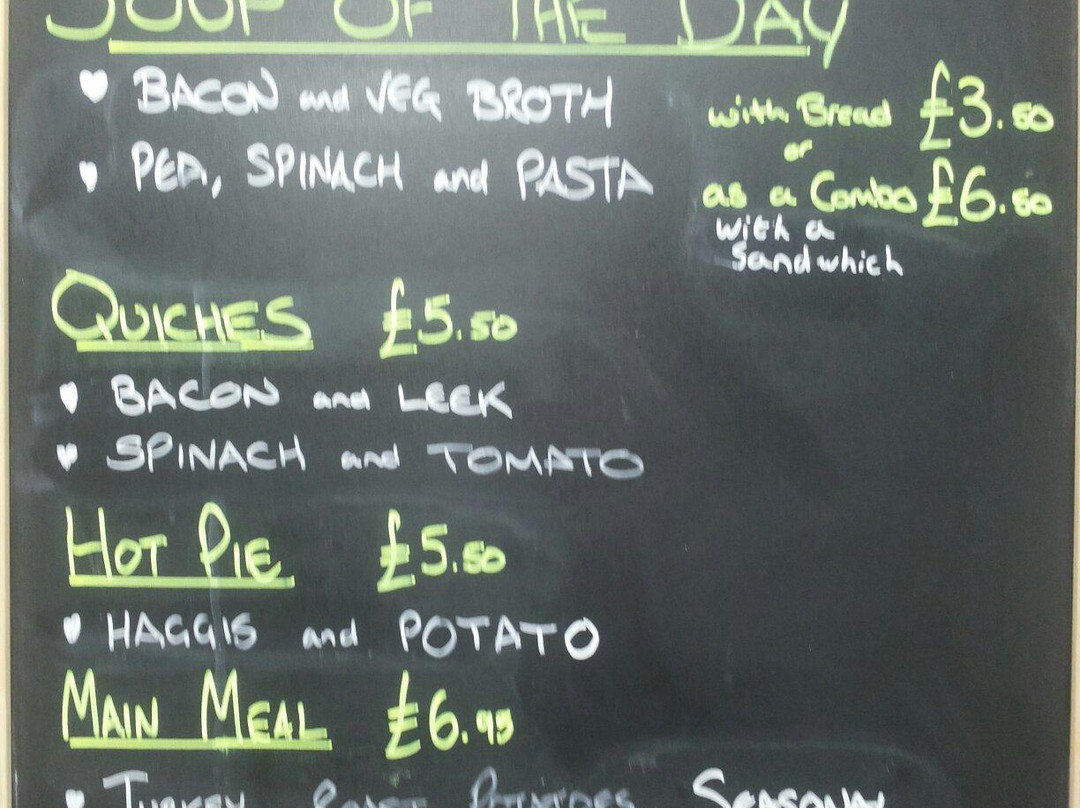 SOUP OF THE DAY
BACON and VEG BROTH
PEA, SPINACH and PASTA
with Bread £3.50
or
as a Combo £6.50
with a
Sandwhich
QUICHES £5.50
BACON and LEEK
SPINACH and TOMATO
HOT PIE £5.50
HAGGIS and POTATO
MAIN MEAL £6.95
TURKEY ROAST POTATOES SEASONAL